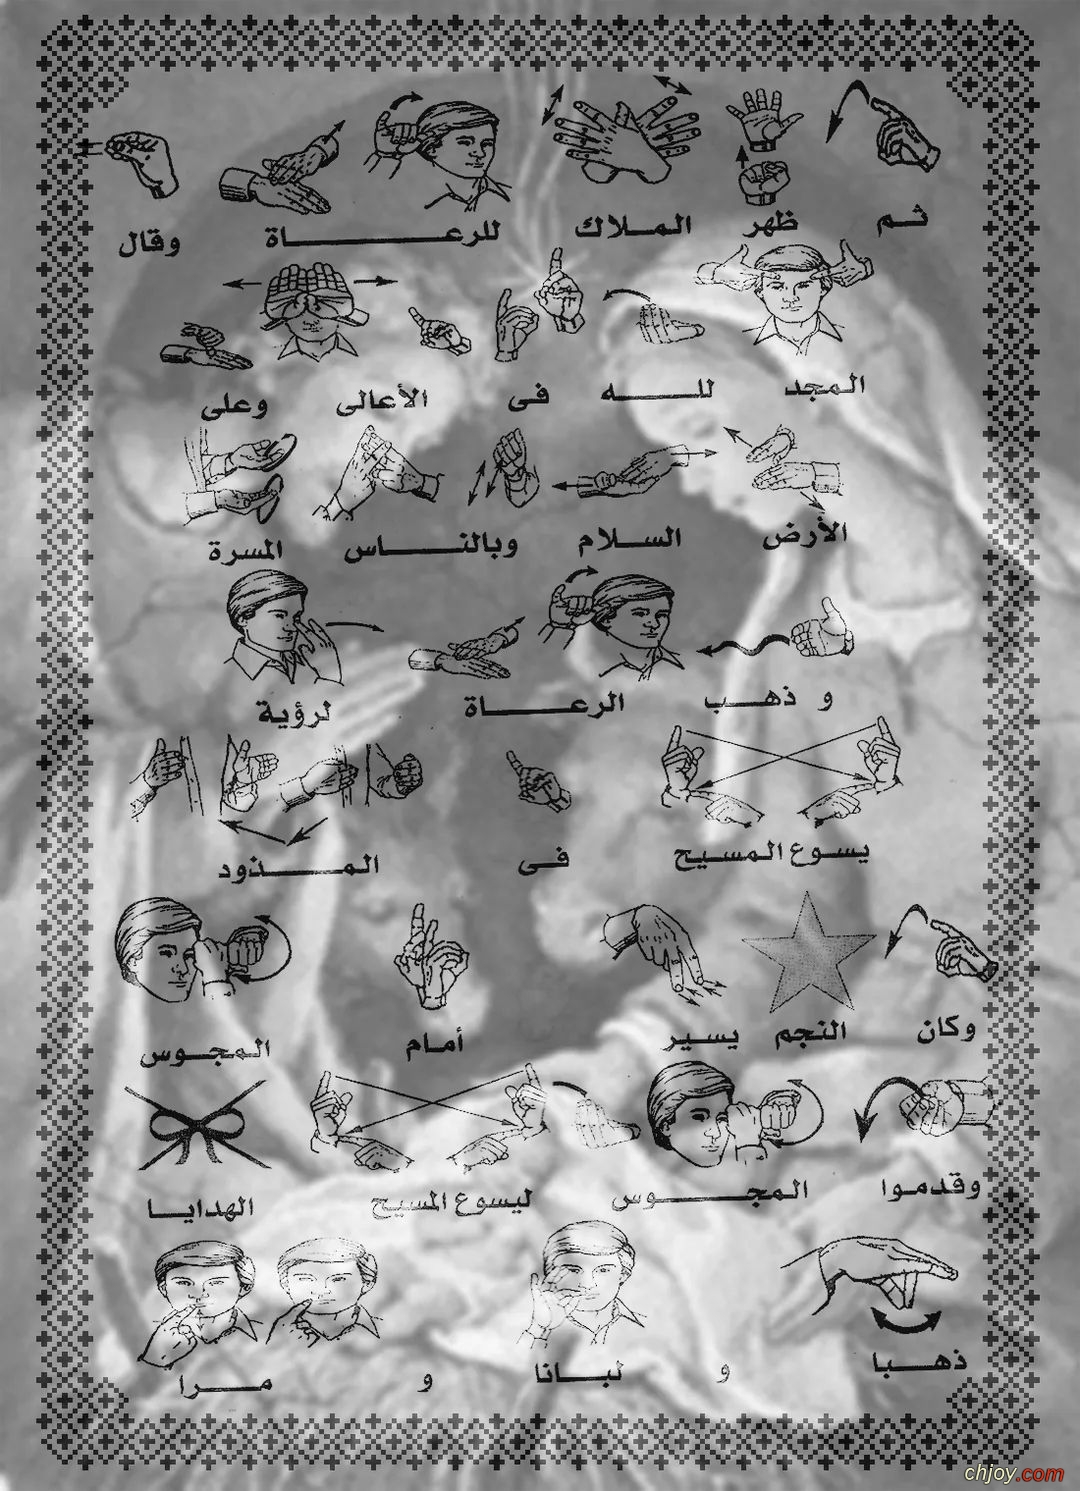 ثم ظهر الملاك للرعاة وقال
المجد لله فى الأعالى وعلى
الأرض السلام وبالناس المسرة
و ذهب الرعاة لرؤية
يسوع المسيح فى المذود
وكان النجم يسير أمام المجوس
وقدموا المجوس ليسوع المسيح الهدايا
ذهبا و لبانا و مرا
chjoy.com